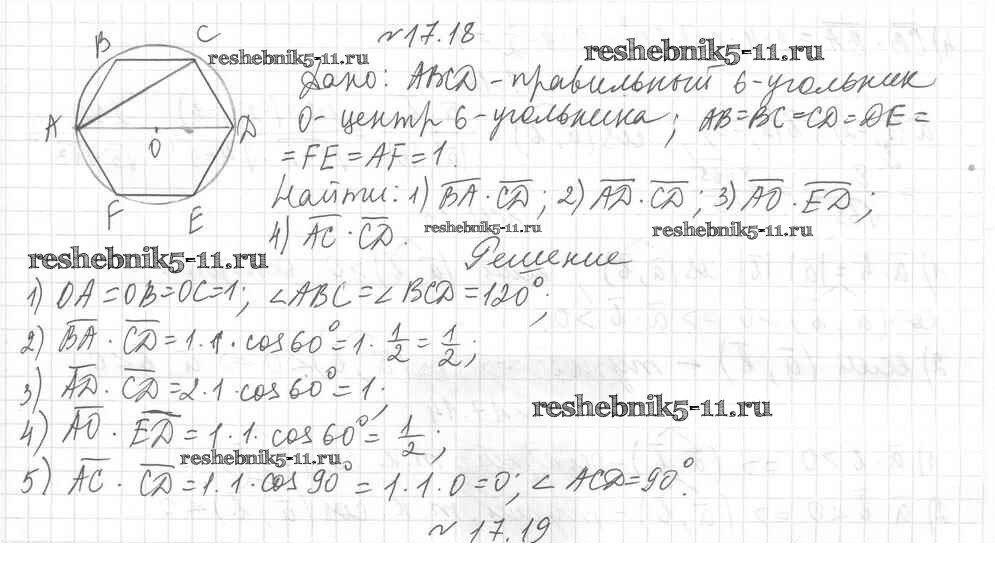 №17.18
B C
reshebnik5-11.ru
reshebnik5-11.ru
Дано: ABCD - правильный 6-угольник
A D
O
O - центр 6-угольника; AB=BC=CD=DE=
=FE=AF=1.
F E
Найти: 1) BA · CD; 2) AD · CD; 3) AO · ED;
reshebnik5-11.ru
reshebnik5-11.ru
4) AC · CD.
reshebnik5-11.ru
Решение
1) OA=OB=OC=1; ∠ABC=∠BCD=120°;
2) BA · CD = 1·1·cos60° = 1 · 1/2 = 1/2;
3) AD · CD = 2·1·cos60° = 1;
reshebnik5-11.ru
4) AO · ED = 1·1·cos60° = 1/2;
reshebnik5-11.ru
5) AC · CD = 1·1·cos90° = 1·1·0=0; ∠ACD=90°.
№17.19